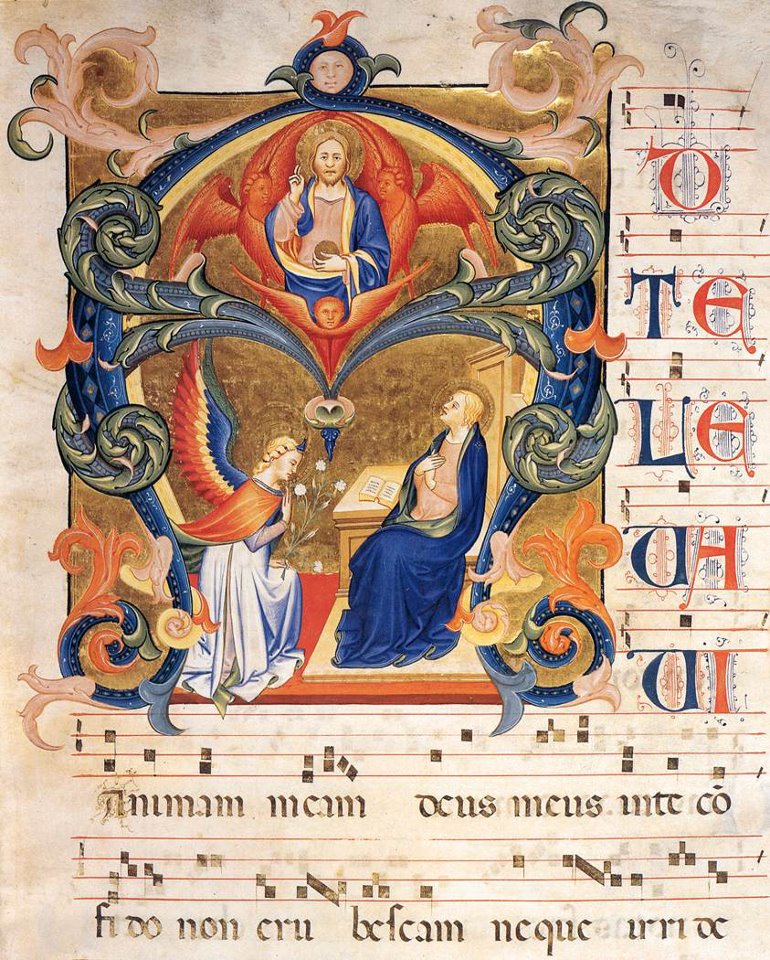 AD
TE
LE
UA
UI
Animam meam deus meus in te cō
fi do non eru beſcam neque irri de